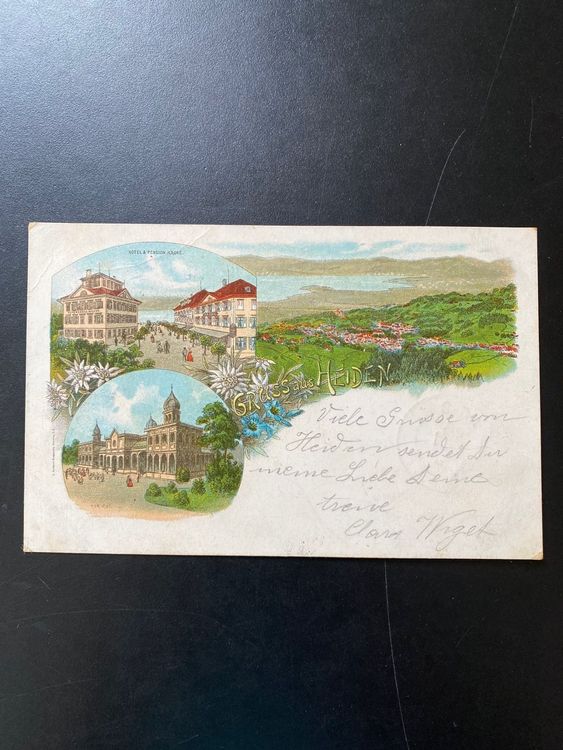 HOTEL & PENSION
GRUSS aus HEIDEN.
Viele Grüsse von
Heiden sendet Dir
meine Liebe Deine
treue
Clara Wiget